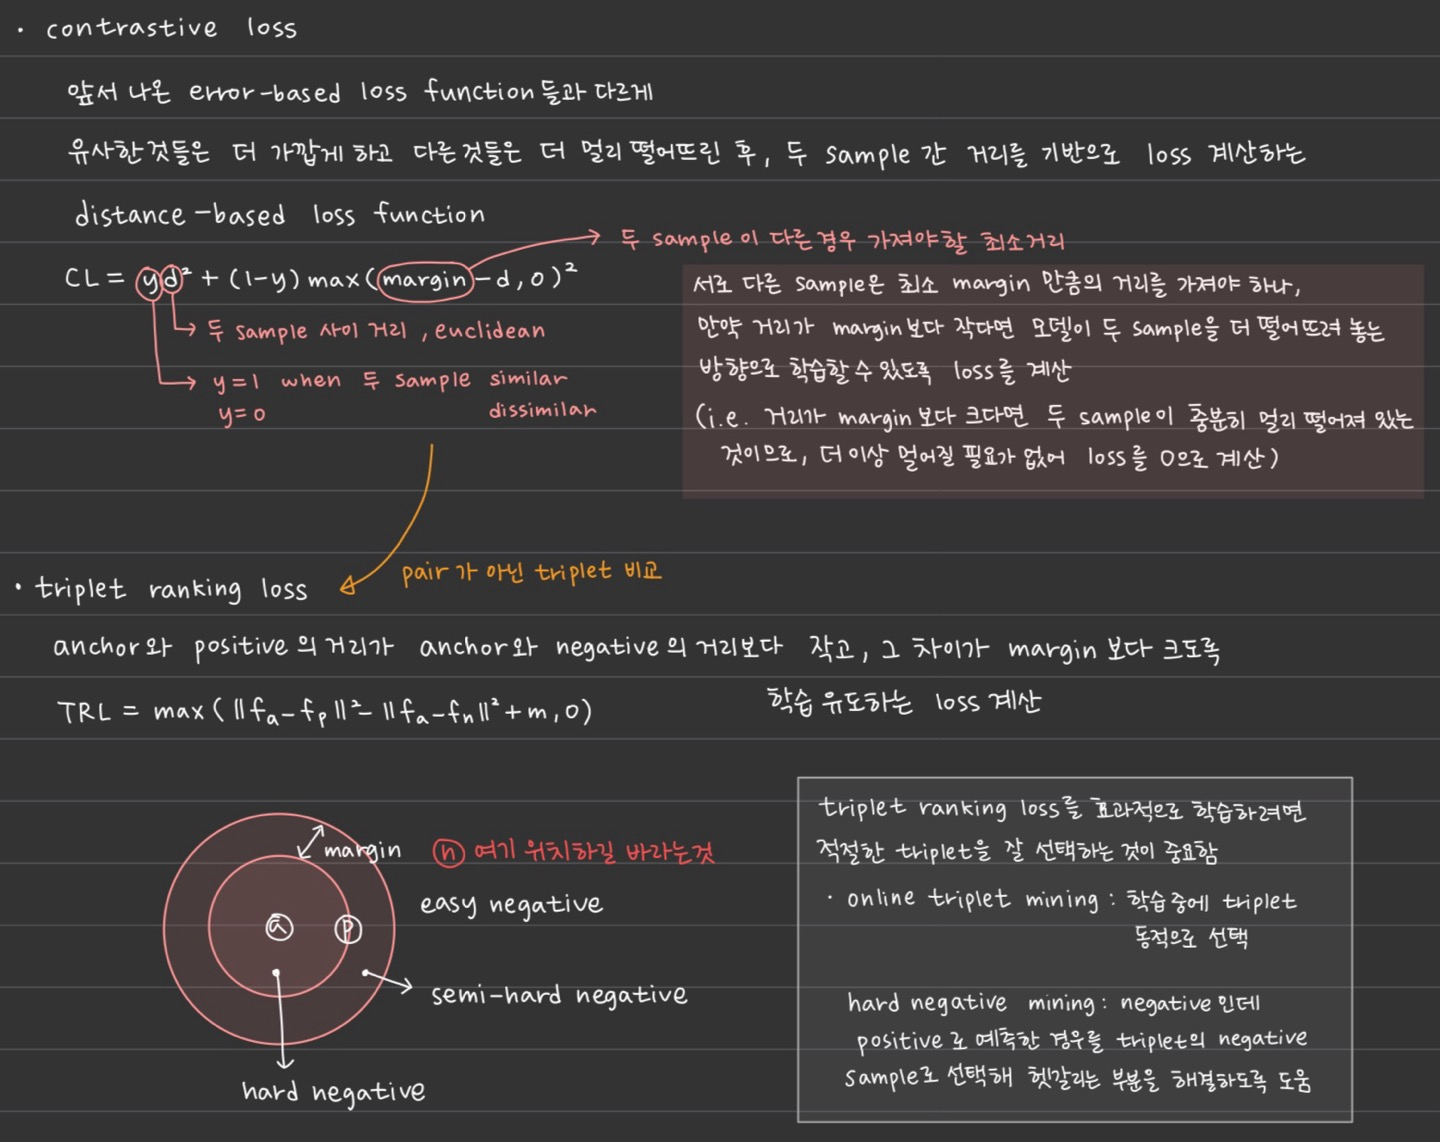 · contrastive loss
앞서 나온 error-based loss function들과 다르게
유사한것들은 더 가깝게 하고 다른것들은 더 멀리 떨어뜨린 후, 두 sample 간 거리를 기반으로 loss 계산하는
distance-based loss function
두 sample이 다른경우 가져야할 최소거리
CL = yd² + (1-y) max(margin-d, 0)²
두 sample 사이 거리, euclidean
y=1 when 두 sample similar
y=0 dissimilar
서로 다른 sample은 최소 margin 만큼의 거리를 가져야 하나,
만약 거리가 margin보다 작다면 모델이 두 sample을 더 떨어뜨려 놓는
방향으로 학습할 수 있도록 loss를 계산
(i.e. 거리가 margin보다 크다면 두 sample이 충분히 멀리 떨어져 있는
것이므로, 더 이상 멀어질 필요가 없어 loss를 0으로 계산)
pair가 아닌 triplet 비교
· triplet ranking loss
anchor와 positive의 거리가 anchor와 negative의 거리보다 작고, 그 차이가 margin보다 크도록
학습 유도하는 loss 계산
TRL = max(||fₐ-fₚ||²-||fₐ-fₙ||²+m, 0)
margin
n 여기 위치하길 바라는것
easy negative
a
p
semi-hard negative
hard negative
triplet ranking loss를 효과적으로 학습하려면
적절한 triplet을 잘 선택하는 것이 중요함
· online triplet mining : 학습 중에 triplet
동적으로 선택
hard negative mining : negative인데
positive로 예측한 경우를 triplet의 negative
sample로 선택해 헷갈리는 부분을 해결하도록 도움